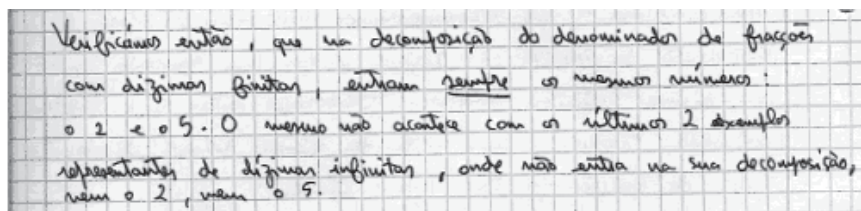 Verificámos então, que na decomposição do denominador de fracções
com dizimas finitas, entram sempre os mesmos números:
o 2 e o 5. O mesmo não acontece com os últimos 2 exemplos
representantes de dízimas infinitas, onde não entra na sua decomposição,
nem o 2, nem o 5.